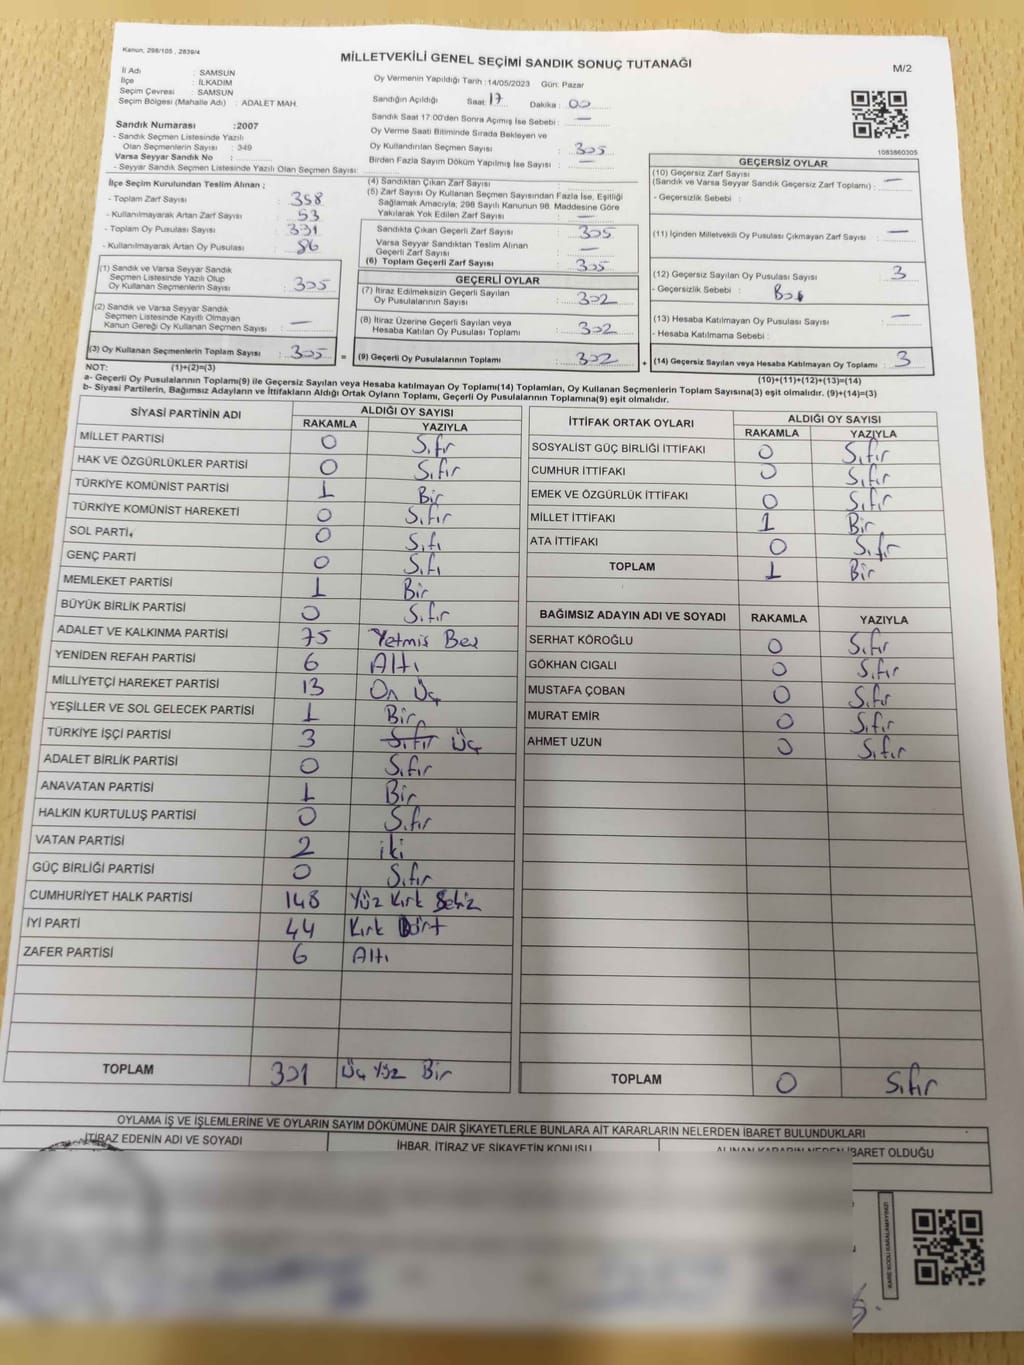 Kanun, 298/105 , 2839/4
MİLLETVEKİLİ GENEL SEÇİMİ SANDIK SONUÇ TUTANAĞI
M/2
İl Adı : SAMSUN
İlçe : İLKADIM
Seçim Çevresi : SAMSUN
Seçim Bölgesi (Mahalle Adı) : ADALET MAH.
Sandık Numarası :2007
- Sandık Seçmen Listesinde Yazılı
Olan Seçmenlerin Sayısı : 349
Varsa Seyyar Sandık No :
- Seyyar Sandık Seçmen Listesinde Yazılı Olan Seçmen Sayısı:
Oy Vermenin Yapıldığı Tarih :14/05/2023 Gün: Pazar
Sandığın Açıldığı Saat: 17 Dakika : 00
Sandık Saat 17:00'den Sonra Açımış İse Sebebi : —
Oy Verme Saati Bitiminde Sırada Bekleyen ve
Oy Kullandırılan Seçmen Sayısı : 305
Birden Fazla Sayım Döküm Yapılmış İse Sayısı : —
1083860305
İlçe Seçim Kurulundan Teslim Alınan ;
- Toplam Zarf Sayısı : 358
- Kullanılmayarak Artan Zarf Sayısı : 53
- Toplam Oy Pusulası : 391
- Kullanılmayarak Artan Oy Pusulası : 86
(1) Sandık ve Varsa Seyyar Sandık
Seçmen Listesinde Yazılı Olup
Oy Kullanan Seçmenlerin Sayısı : 305
(2) Sandık ve Varsa Seyyar Sandık
Seçmen Listesinde Kayıtlı Olmayan
Kanun Gereği Oy Kullanan Seçmen Sayısı : —
(3) Oy Kullanan Seçmenlerin Toplam Sayısı : 305 =
(4) Sandıktan Çıkan Zarf Sayısı :
(5) Zarf Sayısı Oy Kullanan Seçmen Sayısından Fazla İse, Eşitliği
Sağlamak Amacıyla; 298 Sayılı Kanunun 98. Maddesine Göre
Yakılarak Yok Edilen Zarf Sayısı : —
Sandıkta Çıkan Geçerli Zarf Sayısı : 305
Varsa Seyyar Sandıktan Teslim Alınan
Geçerli Zarf Sayısı : —
(6) Toplam Geçerli Zarf Sayısı : 305
GEÇERLİ OYLAR
(7) İtiraz Edilmeksizin Geçerli Sayılan
Oy Pusulalarının Sayısı : 302
(8) İtiraz Üzerine Geçerli Sayılan veya
Hesaba Katılan Oy Pusulası Toplamı : 302
(9) Geçerli Oy Pusulalarının Toplamı : 302 +
GEÇERSİZ OYLAR
(10) Geçersiz Zarf Sayısı
(Sandık ve Varsa Seyyar Sandık Geçersiz Zarf Toplamı) : —
- Geçersizlik Sebebi :
(11) İçinden Milletvekili Oy Pusulası Çıkmayan Zarf Sayısı : —
(12) Geçersiz Sayılan Oy Pusulası Sayısı : 3
- Geçersizlik Sebebi :
(13) Hesaba Katılmayan Oy Pusulası Sayısı : —
- Hesaba Katılmama Sebebi :
(14) Geçersiz Sayılan veya Hesaba Katılmayan Oy Toplamı : 3
NOT: (1)+(2)=(3) (10)+(11)+(12)+(13)=(14)
a- Geçerli Oy Pusulalarının Toplamı(9) ile Geçersiz Sayılan veya Hesaba katılmayan Oy Toplamı(14) Toplamları, Oy Kullanan Seçmenlerin Toplam Sayısına(3) eşit olmalıdır. (9)+(14)=(3)
b- Siyasi Partilerin, Bağımsız Adayların ve İttifakların Aldığı Ortak Oyların Toplamı, Geçerli Oy Pusulalarının Toplamına(9) eşit olmalıdır.
SİYASİ PARTİNİN ADI ALDIĞI OY SAYISI
RAKAMLA YAZIYLA
MİLLET PARTİSİ 0 Sıfır
HAK VE ÖZGÜRLÜKLER PARTİSİ 0 Sıfır
TÜRKİYE KOMÜNİST PARTİSİ 1 Bir
TÜRKİYE KOMÜNİST HAREKETİ 0 Sıfır
SOL PARTİ 0 Sıfı
GENÇ PARTİ 0 Sıfı
MEMLEKET PARTİSİ 1 Bir
BÜYÜK BİRLİK PARTİSİ 0 Sıfır
ADALET VE KALKINMA PARTİSİ 75 Yetmiş Beş
YENİDEN REFAH PARTİSİ 6 Altı
MİLLİYETÇİ HAREKET PARTİSİ 13 On Üç
YEŞİLLER VE SOL GELECEK PARTİSİ 1 Bir
TÜRKİYE İŞÇİ PARTİSİ 3 Sıfır Üç
ADALET BİRLİK PARTİSİ 0 Sıfır
ANAVATAN PARTİSİ 1 Bir
HALKIN KURTULUŞ PARTİSİ 0 Sıfır
VATAN PARTİSİ 2 iki
GÜÇ BİRLİĞİ PARTİSİ 0 Sıfır
CUMHURİYET HALK PARTİSİ 148 Yüz Kırk Sekiz
İYİ PARTİ 44 Kırk Dört
ZAFER PARTİSİ 6 Altı
TOPLAM 301 Üç Yüz Bir
İTTİFAK ORTAK OYLARI ALDIĞI OY SAYISI
RAKAMLA YAZIYLA
SOSYALİST GÜÇ BİRLİĞİ İTTİFAKI 0 Sıfır
CUMHUR İTTİFAKI 0 Sıfır
EMEK VE ÖZGÜRLÜK İTTİFAKI 0 Sıfır
MİLLET İTTİFAKI 1 Bir
ATA İTTİFAKI 0 Sıfır
TOPLAM 1 Bir
BAĞIMSIZ ADAYIN ADI VE SOYADI RAKAMLA YAZIYLA
SERHAT KÖROĞLU 0 Sıfır
GÖKHAN CIGALI 0 Sıfır
MUSTAFA ÇOBAN 0 Sıfır
MURAT EMİR 0 Sıfır
AHMET UZUN 0 Sıfır
TOPLAM 0 Sıfır
OYLAMA İŞ VE İŞLEMLERİNE VE OYLARIN SAYIM DÖKÜMÜNE DAİR ŞİKAYETLERLE BUNLARA AİT KARARLARIN NELERDEN İBARET BULUNDUKLARI
İTİRAZ EDENİN ADI VE SOYADI İHBAR, İTİRAZ VE ŞİKAYETİN KONUSU ALINAN KARARIN NEDEN İBARET OLDUĞU
KARE KODU KARALAMAYINIZ!